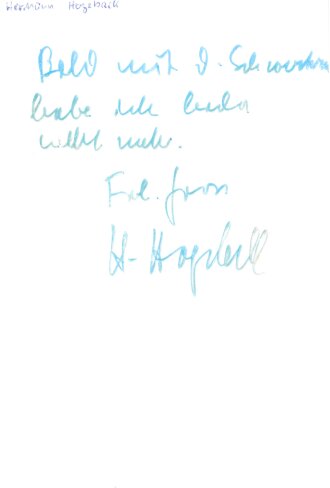 Hermann Hogeback
Bild mit d. Schwertern
habe ich leider
nicht mehr.
Frdl. Gruss
H. Hogeback